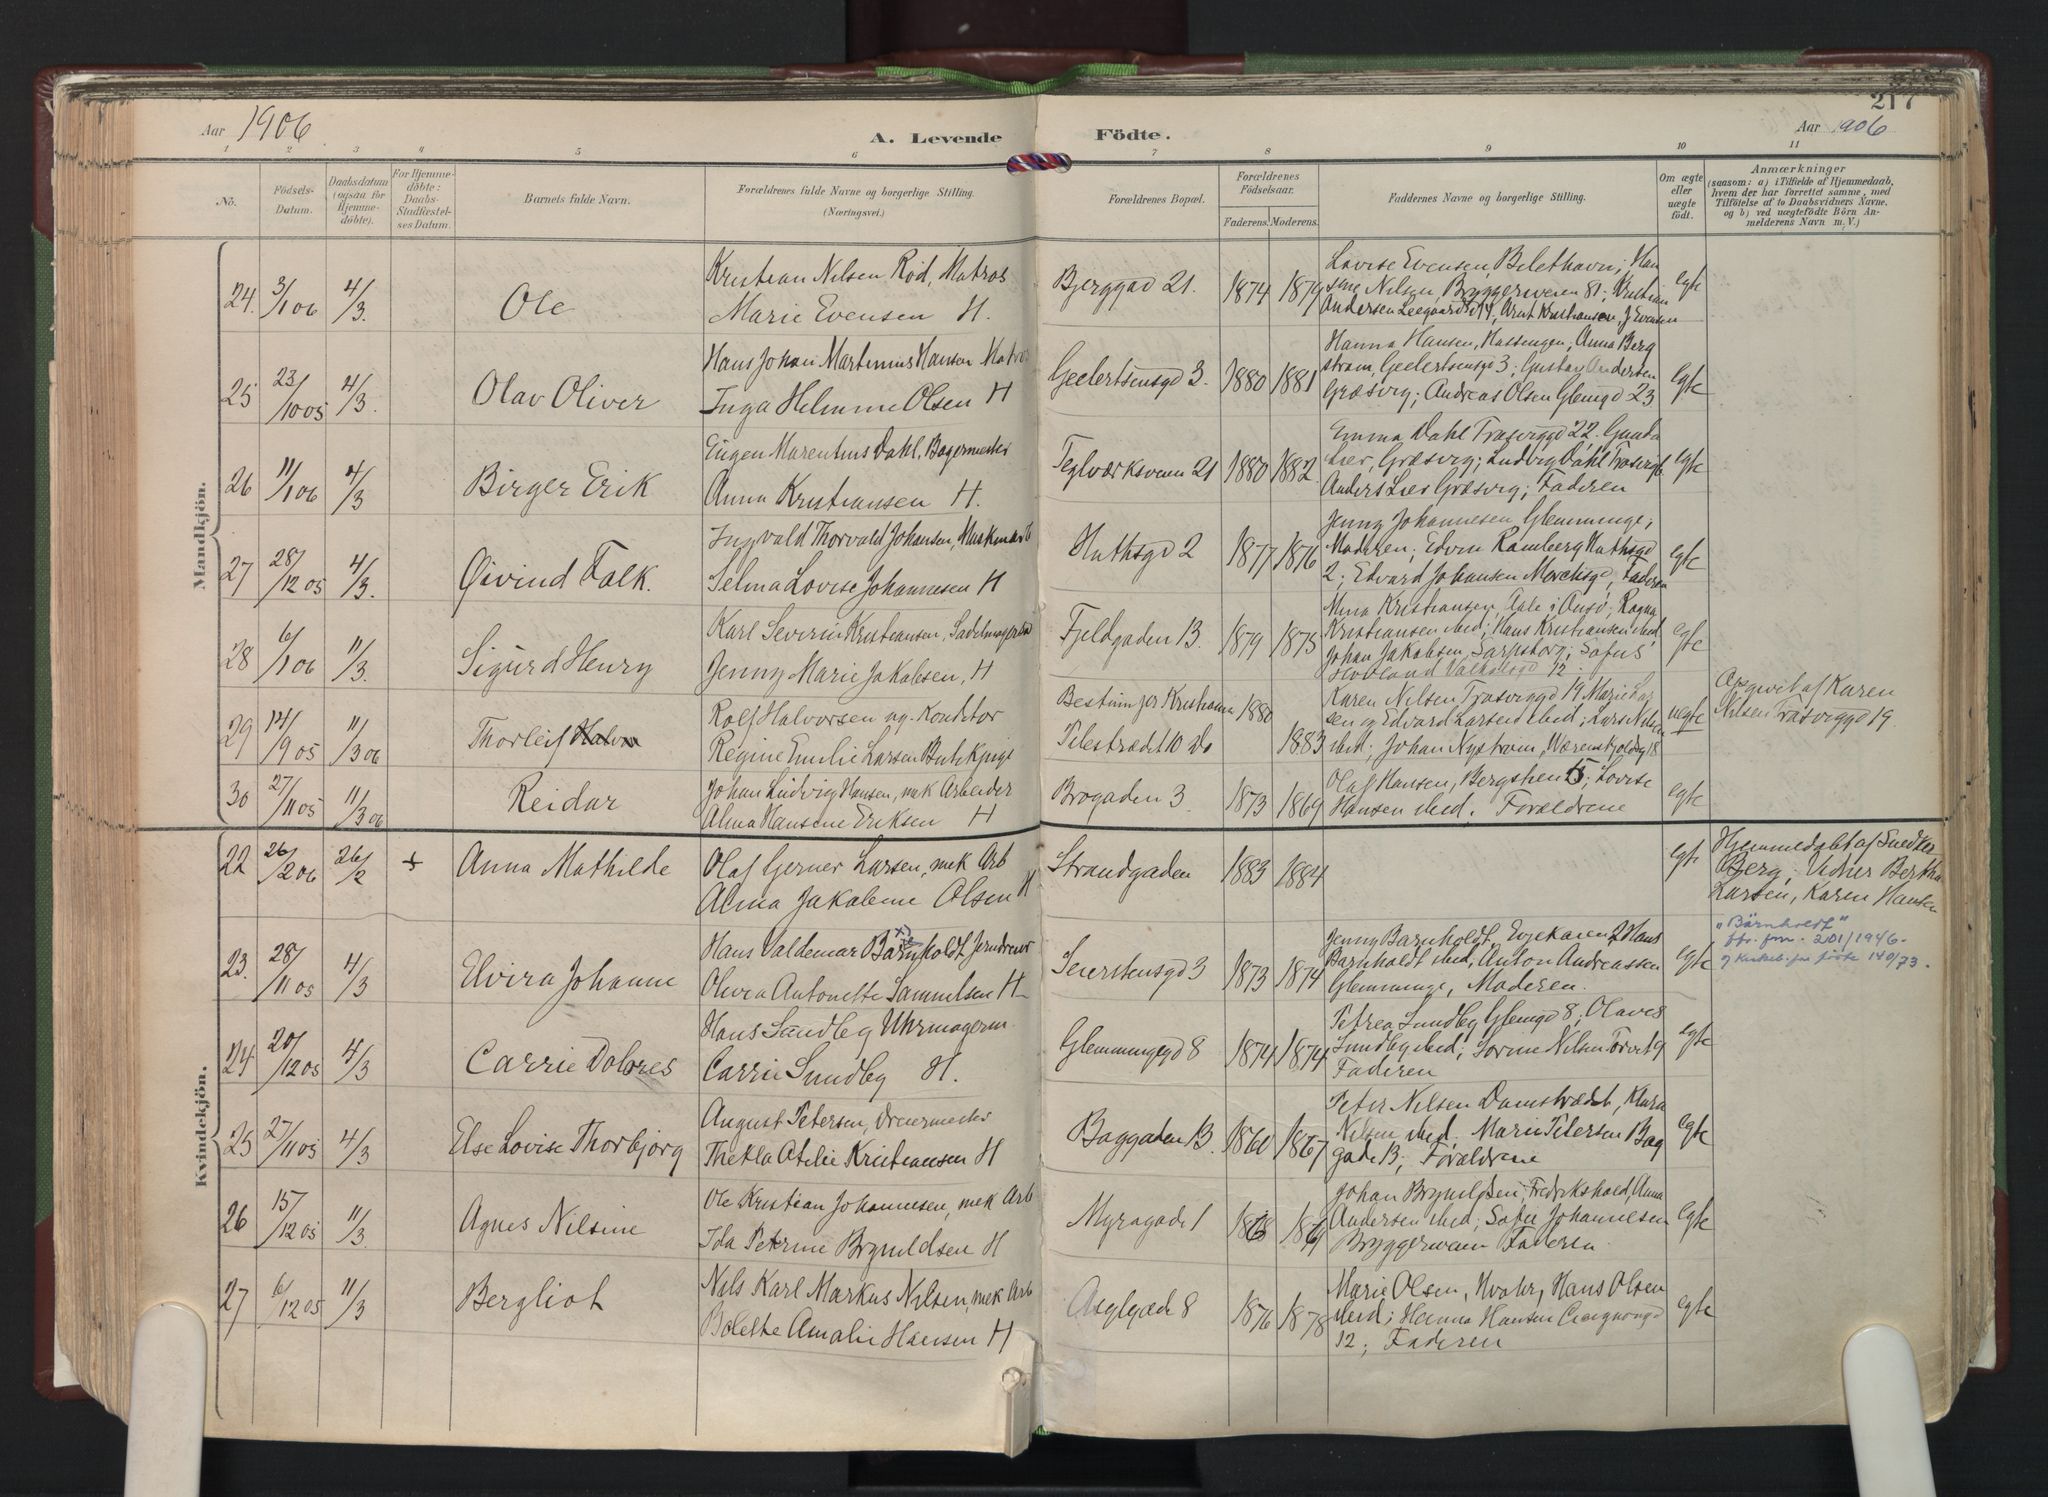 217
Aar 1906
A. Levende Födte.
Aar 1906
1 2 3 4 5 6 7 8 9 10 11
No.
Födsels-
Datum.
Daabsdatum
(ogsaa for
Hjemme-
döbte).
For Hjemme-
döbte:
Daabs-
Stadfæstel-
ses Datum.
Barnets fulde Navn.
Forældrenes fulde Navne og borgerlige Stilling.
(Næringsvei.)
Forældrenes Bopæl.
Forældrenes
Födselsaar.
Faderens. Moderens.
Faddernes Navne og borgerlige Stilling.
Om ægte
eller
uægte
födt.
Anmærkninger
(saasom: a) i Tilfælde af Hjemmedaab,
hvem der har forrettet samme, med
Tilföielse af to Daabsvidners Navne,
og b) ved uægtefödte Börn An-
melderens Navn m. V.)
Mandkjön.
24. 3/1 06 4/3. Ole
Kristian Nilsen Rød, Matros
Marie Evensen H.
Bjerggad 21. 1874 1879
Lovise Evensen, Bilethavn; Han
sine Nilsen, Bryggerveien 81; Kristian
Andersen Leegaardsgd 14, Arnt Kristiansen, J Evensen
egte
25 23/10 05 4/3. Olav Oliver
Hans Johan Martinius Hansen Matros
Inga Helmine Olsen H
Geelertsensgd 3. 1880 1881
Hanna Hansen, Hassengen, Anna Berg
strøm, Geelertsensgd 3; Gustav Andersen
Græsvig; Andreas Olsen Glemgd 23
egte
26 11/1 06 4/3 Birger Erik
Eugen Marentius Dahl, Bagermester
Anna Kristiansen H.
Teglværksveien 21 1880 1882
Emma Dahl Trosviggd 22. Gunda
Lier, Græsvig; Ludvig Dahl Trosvig
Anders Lier Græsvig; Faderen
egte
27 28/12 05 4/3. Øivind Falk.
Ingvald Thorvald Johansen, Maskinarb
Selma Lovise Johannesen H
Huthsgd 2 1877 1876
Jenny Johannesen Glemminge;
Moderen; Edvin Ramberg Huthsgd
2; Edvard Johansen Merchsgd, Faderen
egte
28 6/1 06 11/3. Sigurd Henry
Karl Severin Kristiansen, Sadelmagersv
Jenny Marie Jakobsen, H
Fjeldgaden 13. 1879 1875
Mina Kristiansen, Aale i Onsø; Ragna
Kristiansen ibid; Hans Kristiansen ibid
Johan Jakobsen, Sarpsborg; Sofus
egte
29 14/9 05 11/3 06 Thorleif
Rolf Halvorsen ug. Konditor
Regine Emilie Larsen Butikpige
Kristiania 1880
Pilestrædet 10 do 1883
Karen Nilsen, Trosviggd 19 Marie Lar
sen og Edvard Larsen ibid; Lars Nilsen
ibid; Johan Nystrøm, Wærenskjoldg 18
uegte
Opgivet af Karen
Nilsen Trosviggd 19.
30 27/11 05 11/3 06 Reidar
Johan Ludvig Hansen, mek Arbeider
Alma Hansine Eriksen H
Brogaden 3. 1873 1869
Olaf Hansen, Bergstien 15; Lovise
Hansen ibid. Forældrene
egte
Kvindekjön.
22 26/2 06 26/2 + Anna Mathilde
Olaf Gerner Larsen, mek Arb
Alma Jakobine Olsen H
Strandgaden 1883 1884
egte
Hjemmedøbt af Snedker
Berg; Vidner Bertha
Larsen, Karen Hansen
23. 28/11 05 4/3 Elvira Johanne
Hans Valdemar Barnholdt Jerndreier
Olivia Antonette Samuelsen H
Seierstensgd 3 1873 1874
Jenny Barnholdt, Evjekaien 2 Hans
Barnholdt ibid, Anton Andreassen
Glemminge, Moderen.
egte
"Bärnholdt"
jfr. jrn. 201/1946-
24 20/12 05 4/3 Carrie Dolores
Hans Sundby Uhrmagerm
Carrie Sundby H.
Glemminggd 8 1874 1874
Petrea Sundby Glemgd 8; Olaves
Sundby ibid; Sorine Nilsen Torvet 9
Faderen
egte
25 27/11 05 4/3 Else Lovise Thorbjørg
August Petersen, Dreiermester
Thekla Otelie Kristiansen H
Baggaden 13. 1860 1867
Peter Nilsen Damstrædet, Klara
Nilsen ibid; Marie Petersen Bag
gade 13; Forældrene
egte
26 15/12 05 11/3 Agnes Nilsine
Ole Kristian Johannesen, mek Arb
Ida Petrine Brynildsen H
Myragade 1 1868 1869
Johan Brynildsen, Fredrikshald, Anna
Andersen ibid; Sofie Johannesen
Bryggerveien Faderen.
egte
27 6/12 05 11/3 Bergliot
Nils Karl Markus Nilsen, mek Arb
Bolette Amalie Hansen H
Asylgade 8 1876 1878
Marie Olsen, Hvaler, Hans Olsen
ibid; Hanna Hansen
12; Faderen
egte